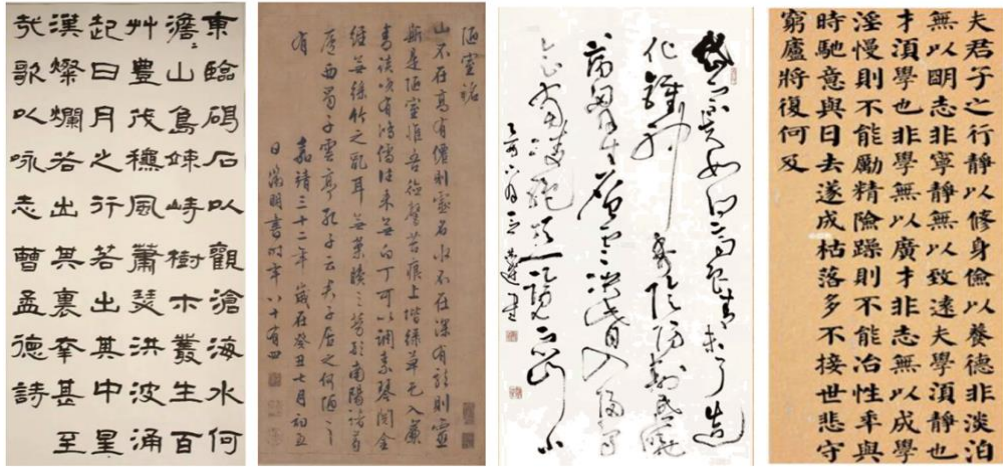 東臨碣石以觀滄海水何
澹〻山島竦峙樹木叢生百
艸豐茂穐風蕭瑟洪波涌
起日月之行若出其中星
漢燦爛若出其裏幸甚至
哉歌以咏志曹孟德詩
陋室銘
山不在高有僊則名水不在深有龍則靈
斯是陋室惟吾德馨苔痕上堦綠草色入簾
青談咲有鴻儒往來無白丁可以調素琴閱金
經無絲竹之亂耳無案牘之勞形南陽諸葛
廬西蜀子雲亭孔子云夫子居之何陋之
有
嘉靖三十二年歲在癸丑七月初五
日徵明書時年八十有四
岱宗夫如何齊魯青未了造
化鍾神秀陰陽割昏曉
盪胸生層雲決眥入歸鳥
會當凌絕頂一覽眾山小
夫君子之行靜以修身儉以養德非淡泊
無以明志非寧靜無以致遠夫學須靜也
才須學也非學無以廣才非志無以成學
淫慢則不能勵精險躁則不能冶性年與
時馳意與日去遂成枯落多不接世悲守
窮廬將復何及